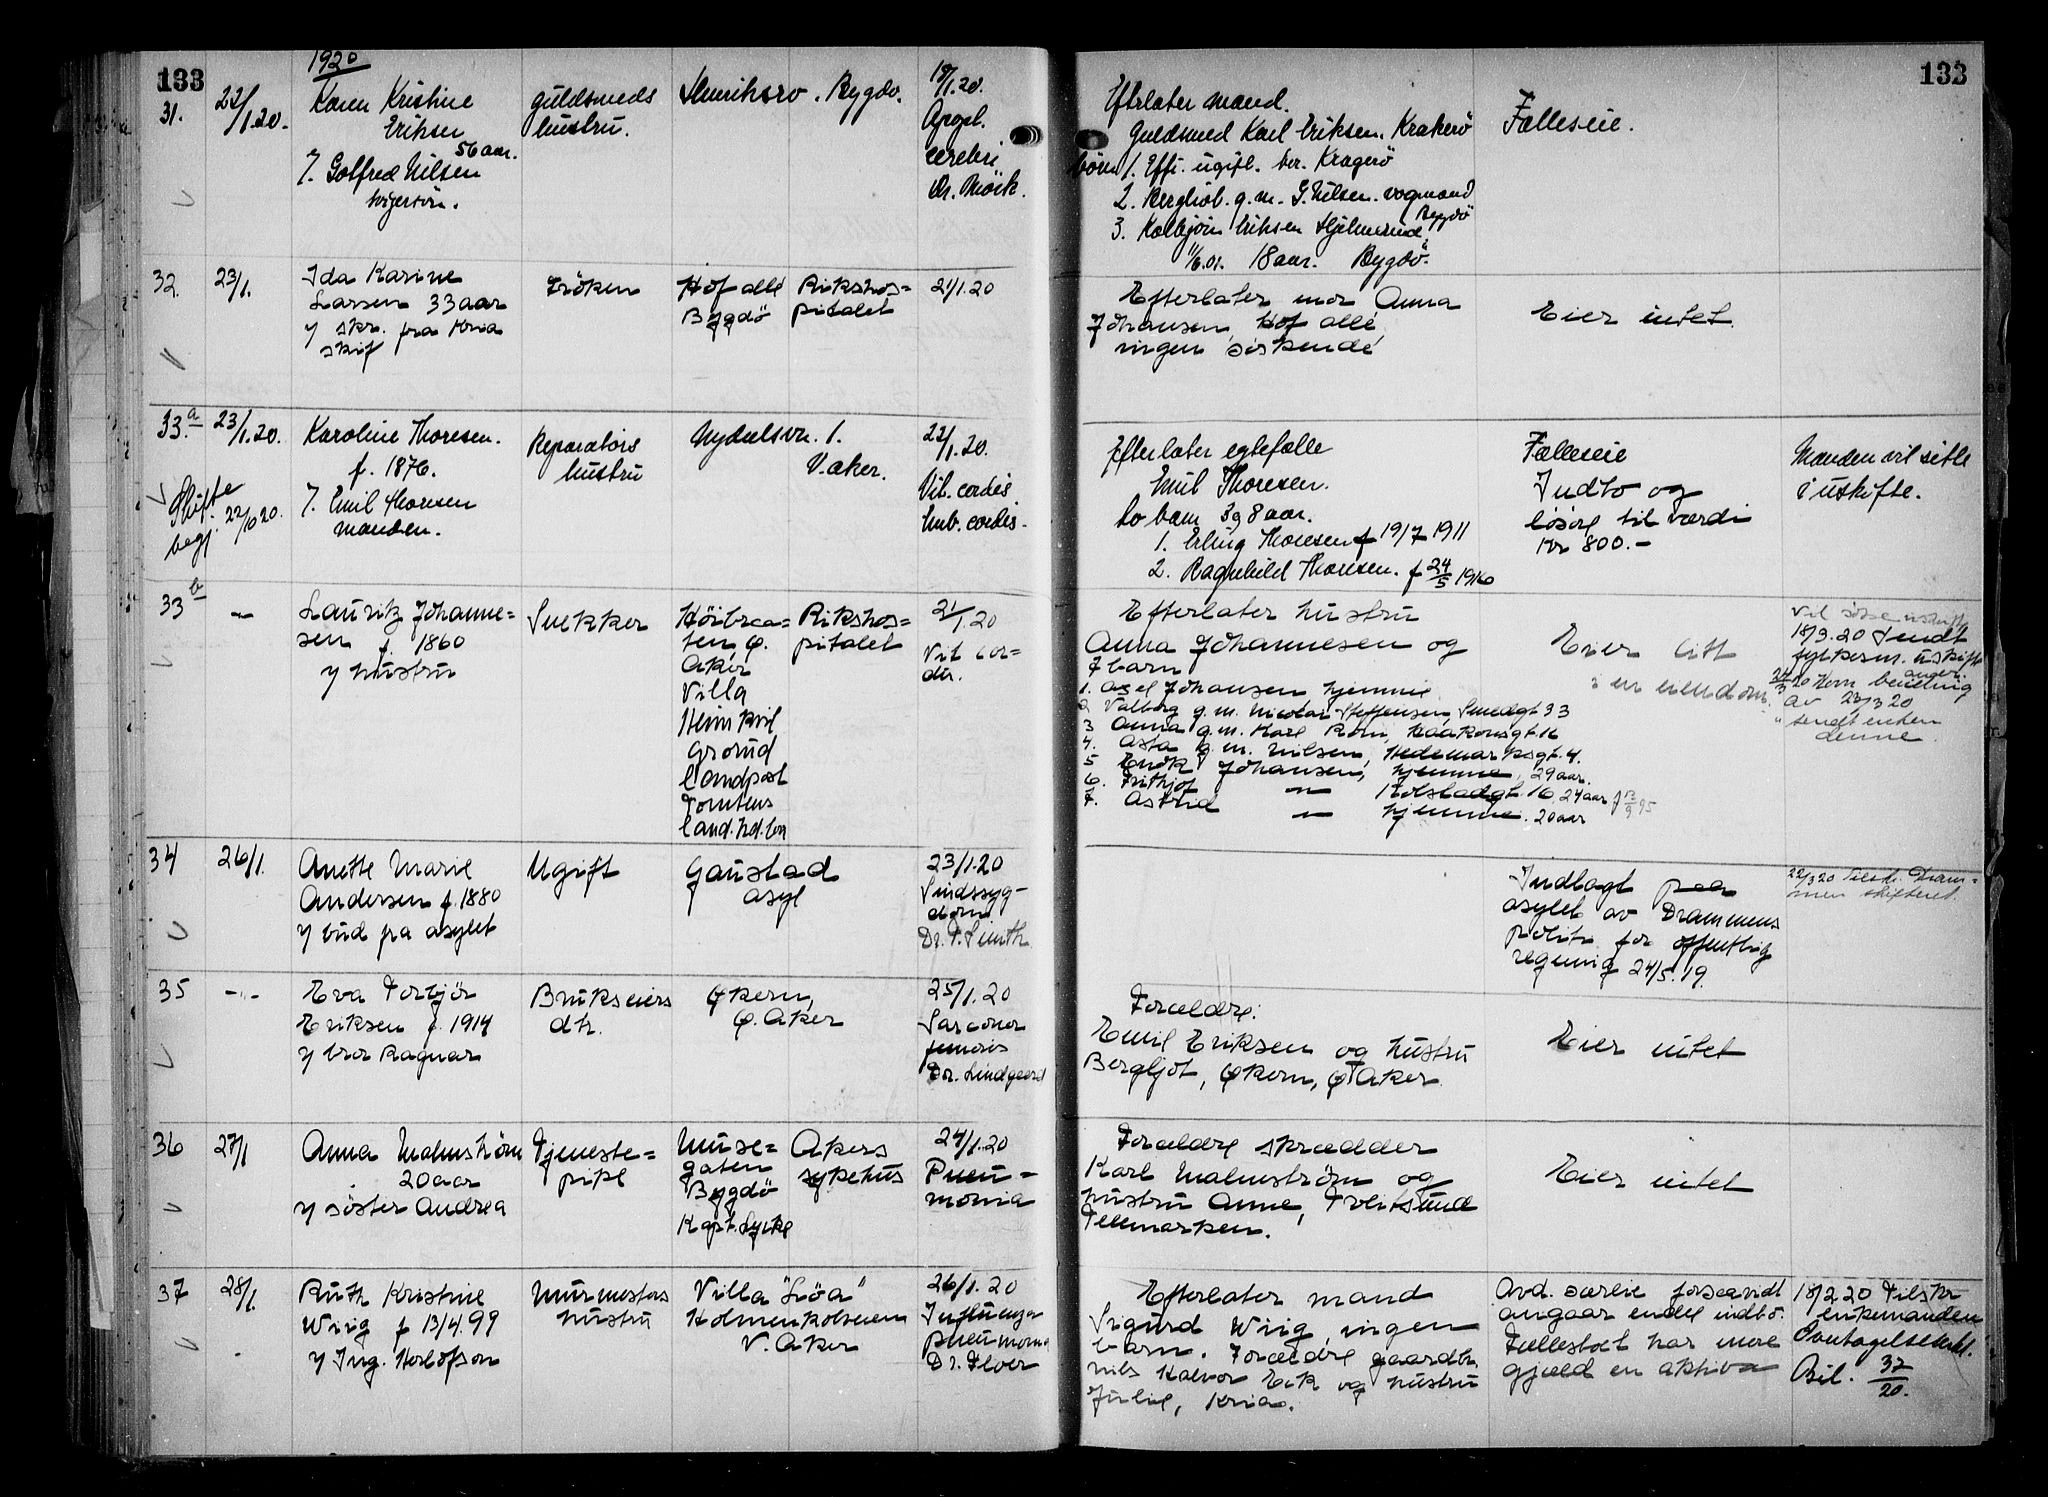 133
133
1920
31.
22/1.20.
Karen Kristine
Eriksen
56 aar.
7. Golfred Nilsen
svigersön.
guldsmeds
hustru.
Henriksro. Bygdö.
18/1.20.
Apopl.
cerebri
Dr. Mörk.
Efterlater mand.
Guldsmed Karl Eriksen. Krakerö
börn 1. Effi. ugift. bor. Kragerö
2. Bergliot. g.m. G. Nilsen. vognmand
Bygdö
3. Kolbjörn Eriksen
11/6.01. 18 aar. Bygdö.
Fælleseie.
32.
23/1.
Ida Karine
Larsen 33 aar
7 skr. fra Kria
skif
Fröken
Hof allé
Bygdö
Rikshos=
pitalet
21/1.20
Efterlater mor Anna
Johansen, Hof allé
ingen söskende
Eier intet.
33.a
23/1.20.
Skifte
begj. 22/10 20.
Karoline Thoresen.
f. 1876.
7. Emil Thoresen
manden.
Reparatörs
hustru
Nydalsvn. 1.
V. aker.
22/1.20.
Vit. cordis
Emb. cordis.
Efterlater egtefælle
Emil Thoresen.
to barn 3 og 8 aar.
1. Erling Thoresen f 19/7 1911
2. Ragnhild Thoresen. f 24/5 1916
Fælleseie
Indbo og
lösöre til værdi
Kr 800.-
Manden vil sitte
i uskifte.
33 b
-"-
Lauritz Johanne=
sen f. 1860
7 hustru
Snekker
Höibraa=
ten Ø.
Aker
Villa
Heimkvil
Grorud
landpost
Tomtens
land.hd.
Rikshos=
pitalet
21/1.20
Vit cor=
dis.
Efterlater hustru
Anna Johannesen og
7 barn
1. Axel Johansen hjemme
2 Valborg g.m. Nicolai Steffensen, Smedgt 33
3 Anna g.m. Karl Rom, Haakonsgt 16
4. Asta g.m. Nilsen, Hedemarksgt. 4.
5 Johansen, hjemme, 29 aar.
6. Frithjof " Kolstadgt. 16, 24 aar f 13/9 95
7. Astrid " hjemme. 20 aar
Eier litt
i en eiendom.
Vil söke uskifte
18/3.20 Sendt
fylkesm. uskifte
anden.
24/3 20 Kom bevilling
av 23/3 20
" sendt enken
denne.
34
26/1.
Anette Marie
Andersen f. 1880
7 bud fra asylet
Ugift
Gaustad
asyl
23/1.20
Sindssyg-
dom
Dr. P. Smith
Indlagt paa
asylet av Drammens
politi for offentlig
regning 24/5.19.
22/3 20 Tilskr. Dram=
men skifteret.
35
-"-
Eva Torbjör
Eriksen f. 1914
7 bror Ragnar
Brukseiers
dtr.
Økern,
Ø. Aker
25/1.20
Sarcomer
femoris
Dr. Lindgaard
Forældre:
Emil Eriksen og hustru
Bergljot, Økern, Ø Aker
Eier intet
36
27/1
Anna Malmström
20 aar
7 söster Andrea
Tjeneste=
pike
Muse=
gaten
Bygdö
Kapt. Lycke
Akers
sykehus
24/1.20
Pneu-
monia
Forældre skrædder
Karl Malmström og
hustru Anne, Tveitsund
Telemarken.
Eier intet
37
28/1.
Ruth Kristine
Wiig f 13/4.99
7 Ing. Herlofson
Murmesters
hustru
Villa "Liöa"
Holmenkolveien
V. Aker
26/1.20
Influenza
pneumoni
Dr. Floer
Efterlater mand
Sigurd Wiig, ingen
barn. Forældre gaardbr.
Nils Halvor Eek og hustru
Julie, Kria.
Avd. særeie forsaavidt
angaar endel indbo.
Fællesboet har mere
gjæld en aktiva
18/2 20 Tilskr
enkemanden
Overtagelseserkl.
Bil. 37/20.